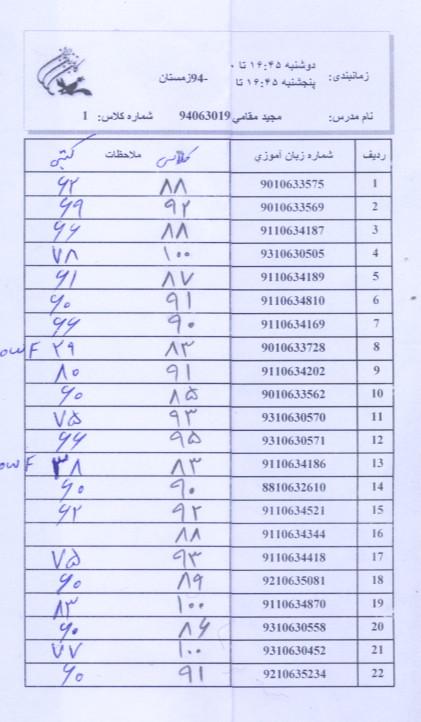 زمانبندی: دوشنبه ۱۶:۴۵ تا ۰
پنجشنبه ۱۶:۴۵ تا
94-زمستان
نام مدرس: مجید مقامی 94063019 شماره کلاس: 1
ردیف شماره زبان آموزی کلاسی ملاحظات کتبی
1 9010633575 ۸۸ ۶۲
2 9010633569 ۹۲ ۶۹
3 9110634187 ۸۸ ۶۶
4 9310630505 ۱۰۰ ۷۸
5 9110634189 ۸۷ ۶۱
6 9110634810 ۹۱ ۶۰
7 9110634169 ۹۰ ۶۶
8 9010633728 ۸۳ ۲۹ F
9 9110634202 ۹۱ ۸۰
10 9010633562 ۸۵ ۶۰
11 9310630570 ۹۳ ۷۵
12 9310630571 ۹۵ ۶۶
13 9110634186 ۸۳ ۳۸ F
14 8810632610 ۹۰ ۶۰
15 9110634521 ۹۲ ۶۲
16 9110634344 ۸۸
17 9110634418 ۹۳ ۷۵
18 9210635081 ۸۹ ۶۰
19 9110634870 ۱۰۰ ۸۳
20 9310630558 ۸۶ ۶۰
21 9310630452 ۱۰۰ ۷۷
22 9210635234 ۹۱ ۶۰